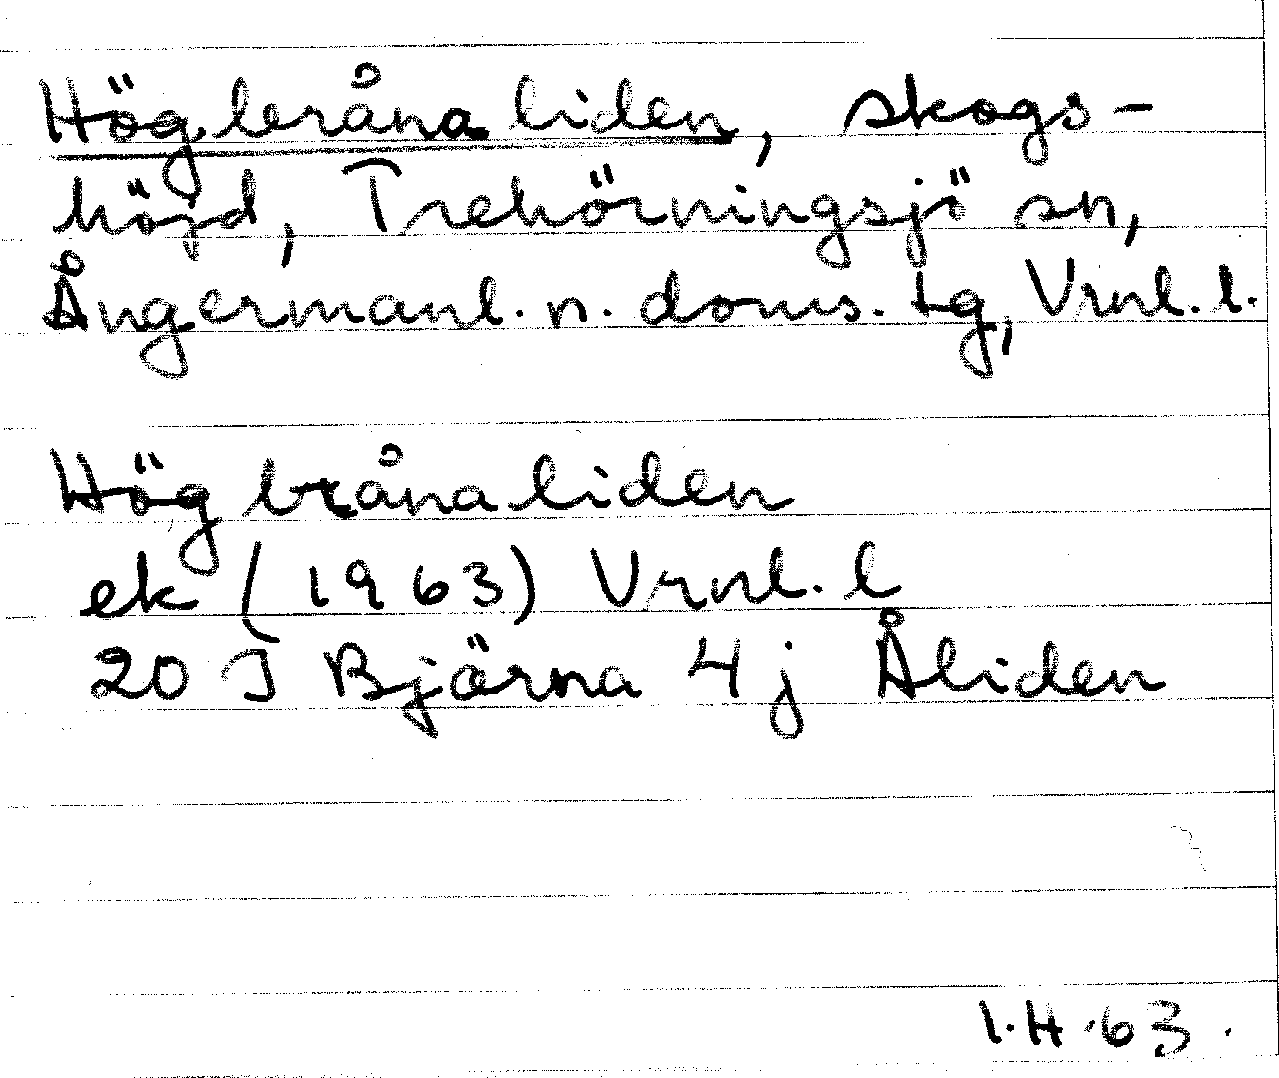 Högbråna liden, skogs-
höjd, Trehörningsjö sn,
Ångermanl. n. doms. tg, Vrnl. l.
Högbrånaliden
ek (1963) Vrnl. l
20 J Björna 4 j Åliden
I.H. 63.